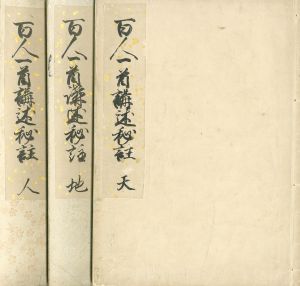 百人一首講述秘註 天
百人一首講述秘註 地
百人一首講述秘註 人